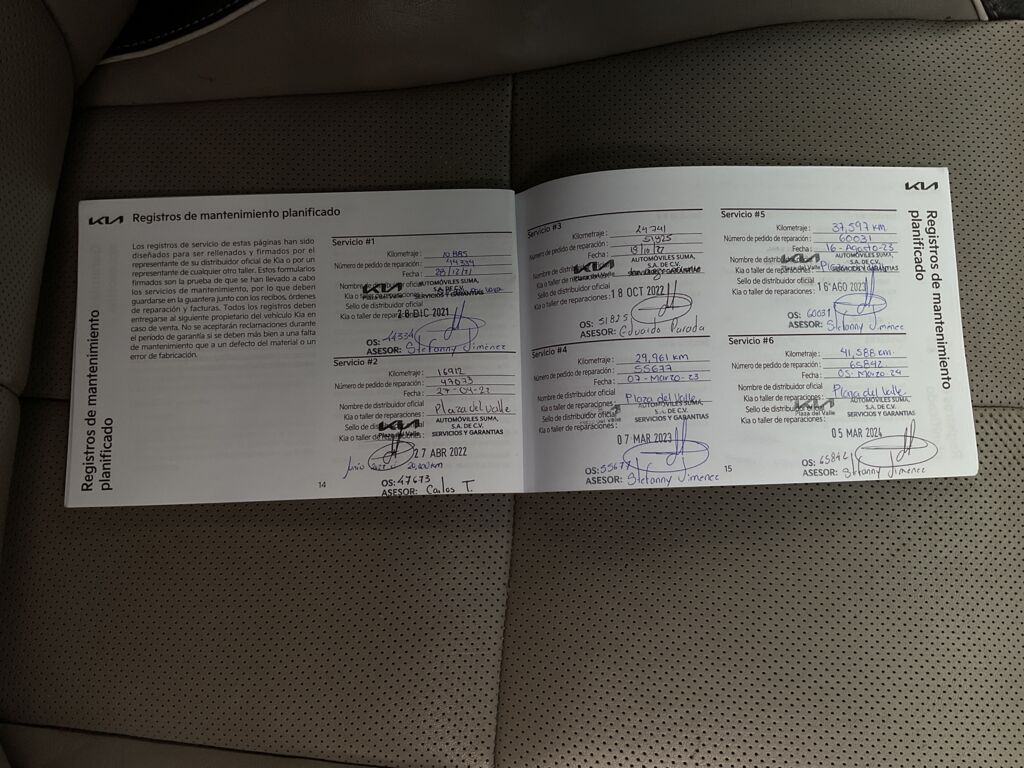 KIA Registros de mantenimiento planificado
Registros de mantenimiento
planificado
Los registros de servicio de estas páginas han sido
diseñados para ser rellenados y firmados por el
representante de su distribuidor oficial de Kia o por un
representante de cualquier otro taller. Estos formularios
firmados son la prueba de que se han llevado a cabo
los servicios de mantenimiento, por lo que deben
guardarse en la guantera junto con los recibos, órdenes
de reparación y facturas. Todos los registros deben
entregarse al siguiente propietario del vehículo Kia en
caso de venta. No se aceptarán reclamaciones durante
el período de garantía si se deben más bien a una falta
de mantenimiento que a un defecto del material o un
error de fabricación.
Servicio #1
Kilometraje : 10885
Número de pedido de reparación : 44334
Fecha : 28/12/21
Kia o taller
KIA Plaza del Valle
AUTOMÓVILES SUMA,
S.A. DE C.V.
SERVICIOS Y GARANTIAS
Sello de distribuidor oficial
Kia o taller de
28 DIC 2021
OS: 44334
ASESOR: Stefanny Jimenez
Servicio #2
Kilometraje : 16912
Número de pedido de reparación : 47673
Fecha : 27-04-22
Nombre de distribuidor oficial
Kia o taller de reparaciones : Plaza del Valle
Sello de distribuidor oficial
Kia o taller de
KIA Plaza del Valle
AUTOMÓVILES SUMA,
S.A. DE C.V.
SERVICIOS Y GARANTIAS
27 ABR 2022
Junio
OS: 47673
ASESOR: Carlos T.
14
Servicio #3
Kilometraje : 24741
Número de pedido de reparación : 51825
Fecha : 19/10/22
Nombre de
Kia o taller de
KIA Plaza del Valle
AUTOMÓVILES SUMA,
S.A. DE C.V.
Sello de distribuidor oficial
Kia o taller de reparaciones :
18 OCT 2022
OS: 51825
ASESOR: Eduardo Parada
Servicio #4
Kilometraje : 29,961 km
Número de pedido de reparación : 55677
Fecha : 07-Marzo-23
Nombre de distribuidor oficial
Kia o taller de reparaciones : Plaza del Valle
Sello de distribuidor oficial
Kia o taller de reparaciones :
AUTOMÓVILES SUMA,
S.A. DE C.V.
SERVICIOS Y GARANTIAS
07 MAR 2023
OS: 55677
ASESOR: Stefanny Jimenez
15
Servicio #5
Kilometraje : 37,597 km
Número de pedido de reparación : 60031
Fecha : 16-Agosto-23
Nombre de
Kia o taller de
KIA Plaza del Valle
AUTOMÓVILES SUMA,
S.A. DE C.V.
SERVICIOS Y GARANTIAS
Sello de distribuidor oficial
Kia o taller de reparaciones :
16 AGO 2023
OS: 60031
ASESOR: Stefanny Jimenez
Servicio #6
Kilometraje : 41,588 km
Número de pedido de reparación : 65842
Fecha : 05-Marzo-24
Nombre de distribuidor oficial
Kia o taller de reparaciones : Plaza del Valle
Sello de distribuidor oficial
Kia o taller de reparaciones :
KIA Plaza del Valle
AUTOMÓVILES SUMA,
S.A. DE C.V.
SERVICIOS Y GARANTIAS
05 MAR 2024
OS: 65842
ASESOR: Stefanny Jimenez
KIA
Registros de mantenimiento
planificado